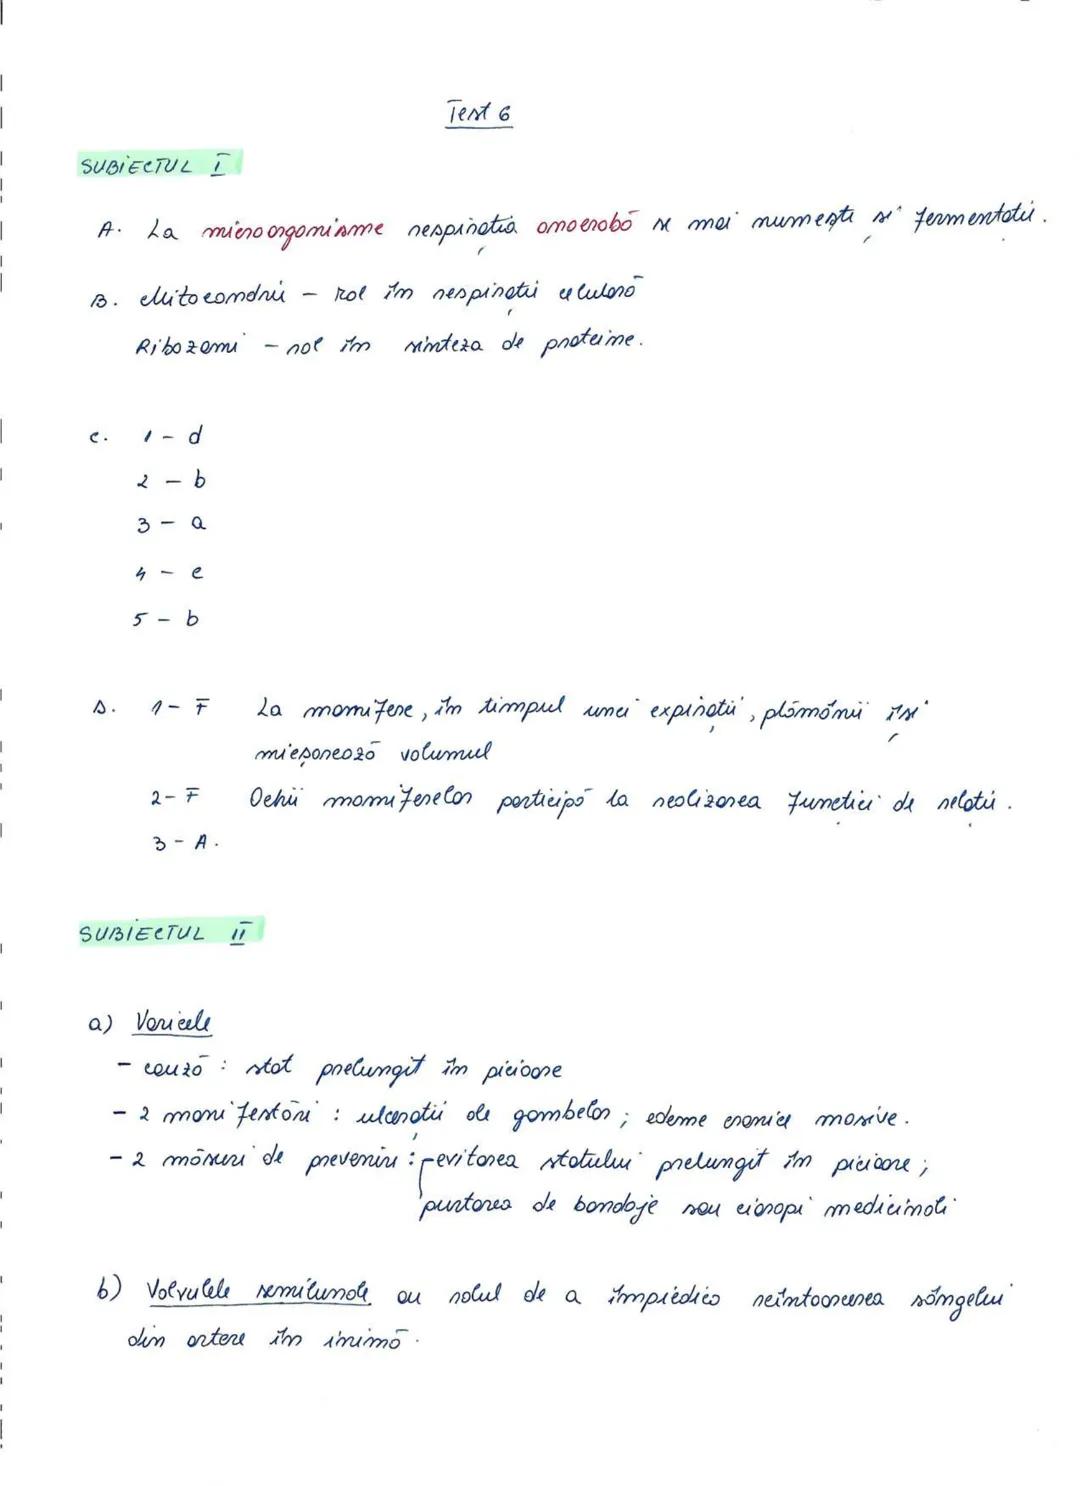 Test 6
SUBIECTUL I
A. La microorganisme respirația anaerobă se mai numește și fermentație.
B. Mitocondrii - rol în respirație celulară
Ribozomi - rol în sinteza de proteine.
C. 1 - d
2 - b
3 - a
4 - c
5 - b
D. 1 - F La mamifere, în timpul unei expirații, plămânii își
micșorează volumul
2 - F Ochii mamiferelor participă la realizarea funcției de relație.
3 - A.
SUBIECTUL II
a) Varicele
- cauză : stat prelungit în picioare
- 2 manifestări : ulcerații ale gambelor ; edeme cronice masive.
- 2 măsuri de prevenire : - evitarea statului prelungit în picioare ;
purtarea de bandaje sau ciorapi medicinali
b) Valvulele semilunare au rolul de a împiedica reîntoarcerea sângelui
din artere în inimă.